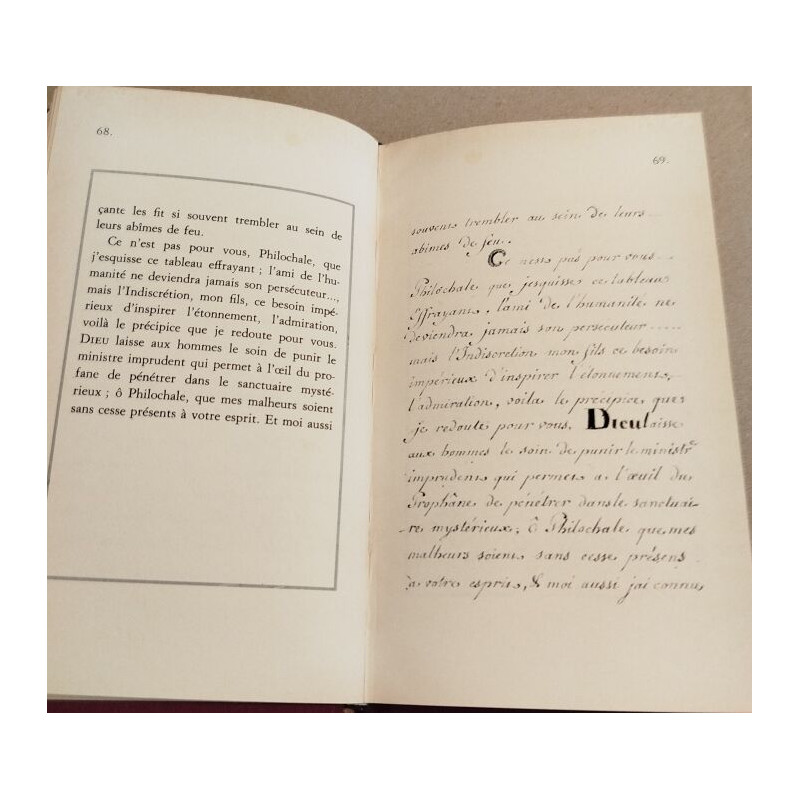 68.
çante les fit si souvent trembler au sein de
leurs abîmes de feu.
Ce n'est pas pour vous, Philochale, que
j'esquisse ce tableau effrayant ; l'ami de l'hu-
manité ne deviendra jamais son persécuteur...,
mais l'Indiscrétion, mon fils, ce besoin impé-
rieux d'inspirer l'étonnement, l'admiration,
voilà le précipice que je redoute pour vous.
DIEU laisse aux hommes le soin de punir le
ministre imprudent qui permet à l'œil du pro-
fane de pénétrer dans le sanctuaire mysté-
rieux ; ô Philochale, que mes malheurs soient
sans cesse présents à votre esprit. Et moi aussi
69.
souvent trembler au sein de leurs
abîmes de feu.
Ce nest pas pour vous
Philochale que jesquisse ce tableau
Effrayant, l'ami de l'humanité ne
deviendra jamais son persecuteur.....
mais l'Indiscretion mon fils ce besoin
impérieux d'inspirer l'étonnement,
l'admiration, voila le précipice que
je redoute pour vous. DIEU laisse
aux hommes le soin de punir le ministre
imprudent qui permet a l'œuil du
Prophâne de pénétrer dans le sanctuai-
-re mystérieux; ô Philochale que mes
malheurs soient sans cesse présens
à votre esprit, & moi aussi jai connu